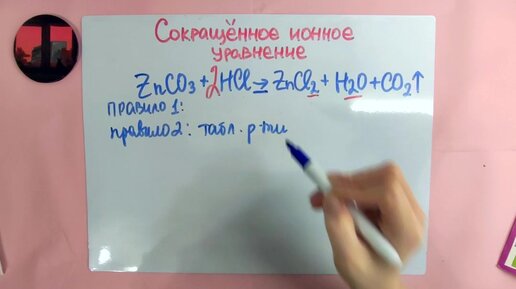 Сокращённое ионное
уравнение
ZnCO3 + 2HCl → ZnCl2 + H2O + CO2↑
правило 1:
правило 2: табл. р-ти